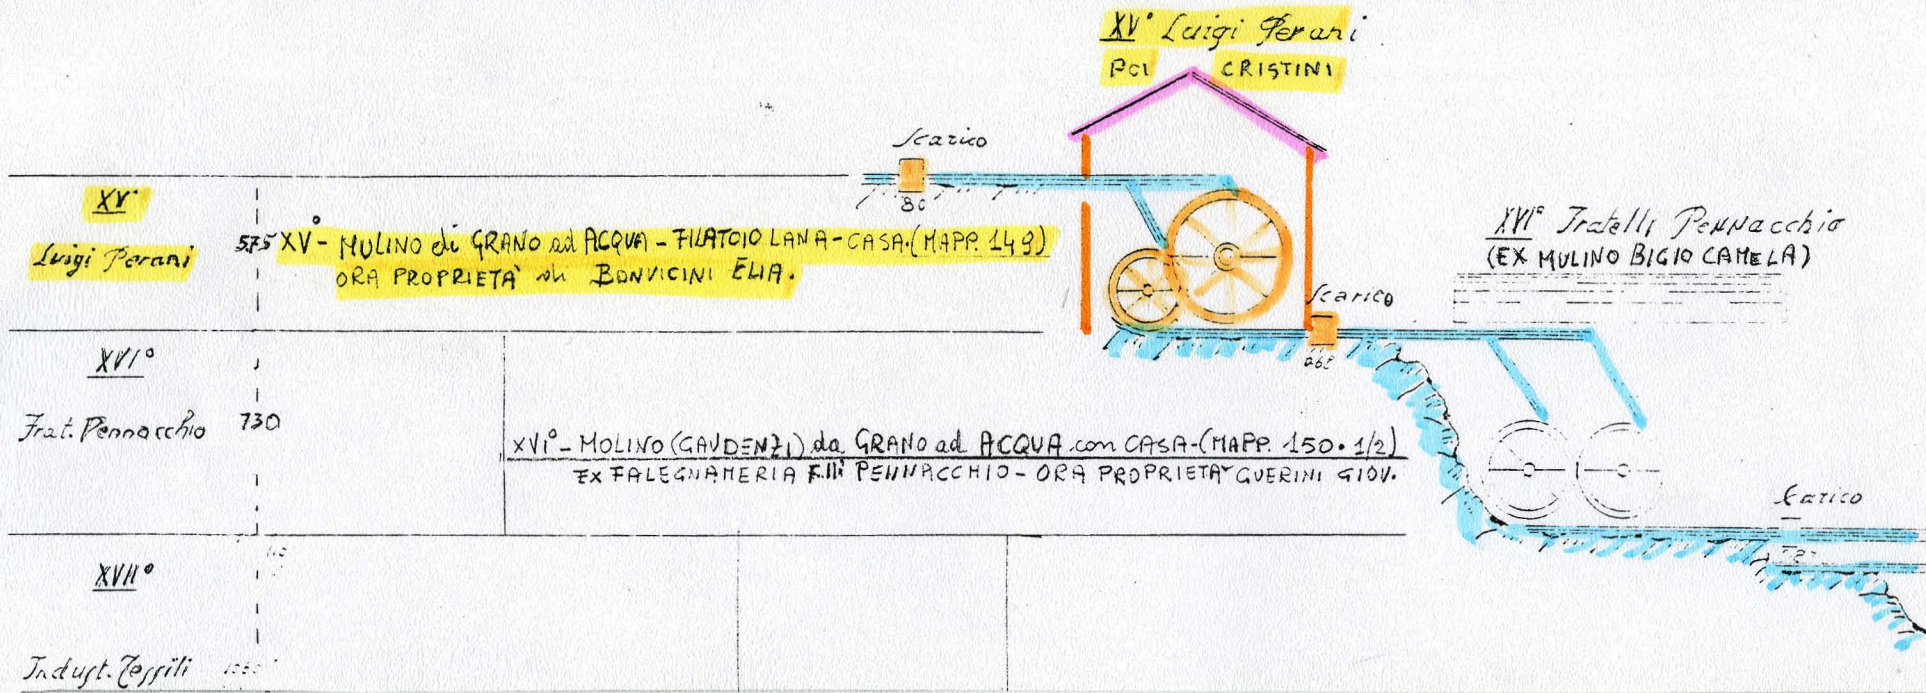 XV° Luigi Perani
POI CRISTINI
Scarico
80
XV°
Luigi Perani
575
XV°- MULINO di GRANO ad ACQUA - FILATOIO LANA - CASA.(MAPP. 149)
ORA PROPRIETÀ di BONVICINI ELIA.
XVI° Fratelli Pennacchio
(EX MULINO BIGIO CAMELA)
Scarico
XVI°
Frat. Pennacchio
730
XVI°- MOLINO (GAUDENZI) da GRANO ad ACQUA con CASA-(MAPP. 150•1/2)
EX FALEGNAMERIA F.lli PENNACCHIO - ORA PROPRIETA' GUERINI GIOV.
Scarico
XVII°
Indust. Tessili